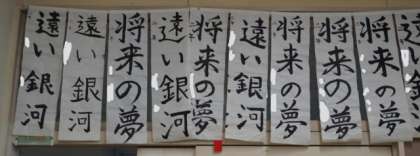 遠い銀河
将来の夢
将来の夢
将来の夢
遠い銀河
将来の夢
遠い銀河
将来の夢
遠い銀河
遠い銀河